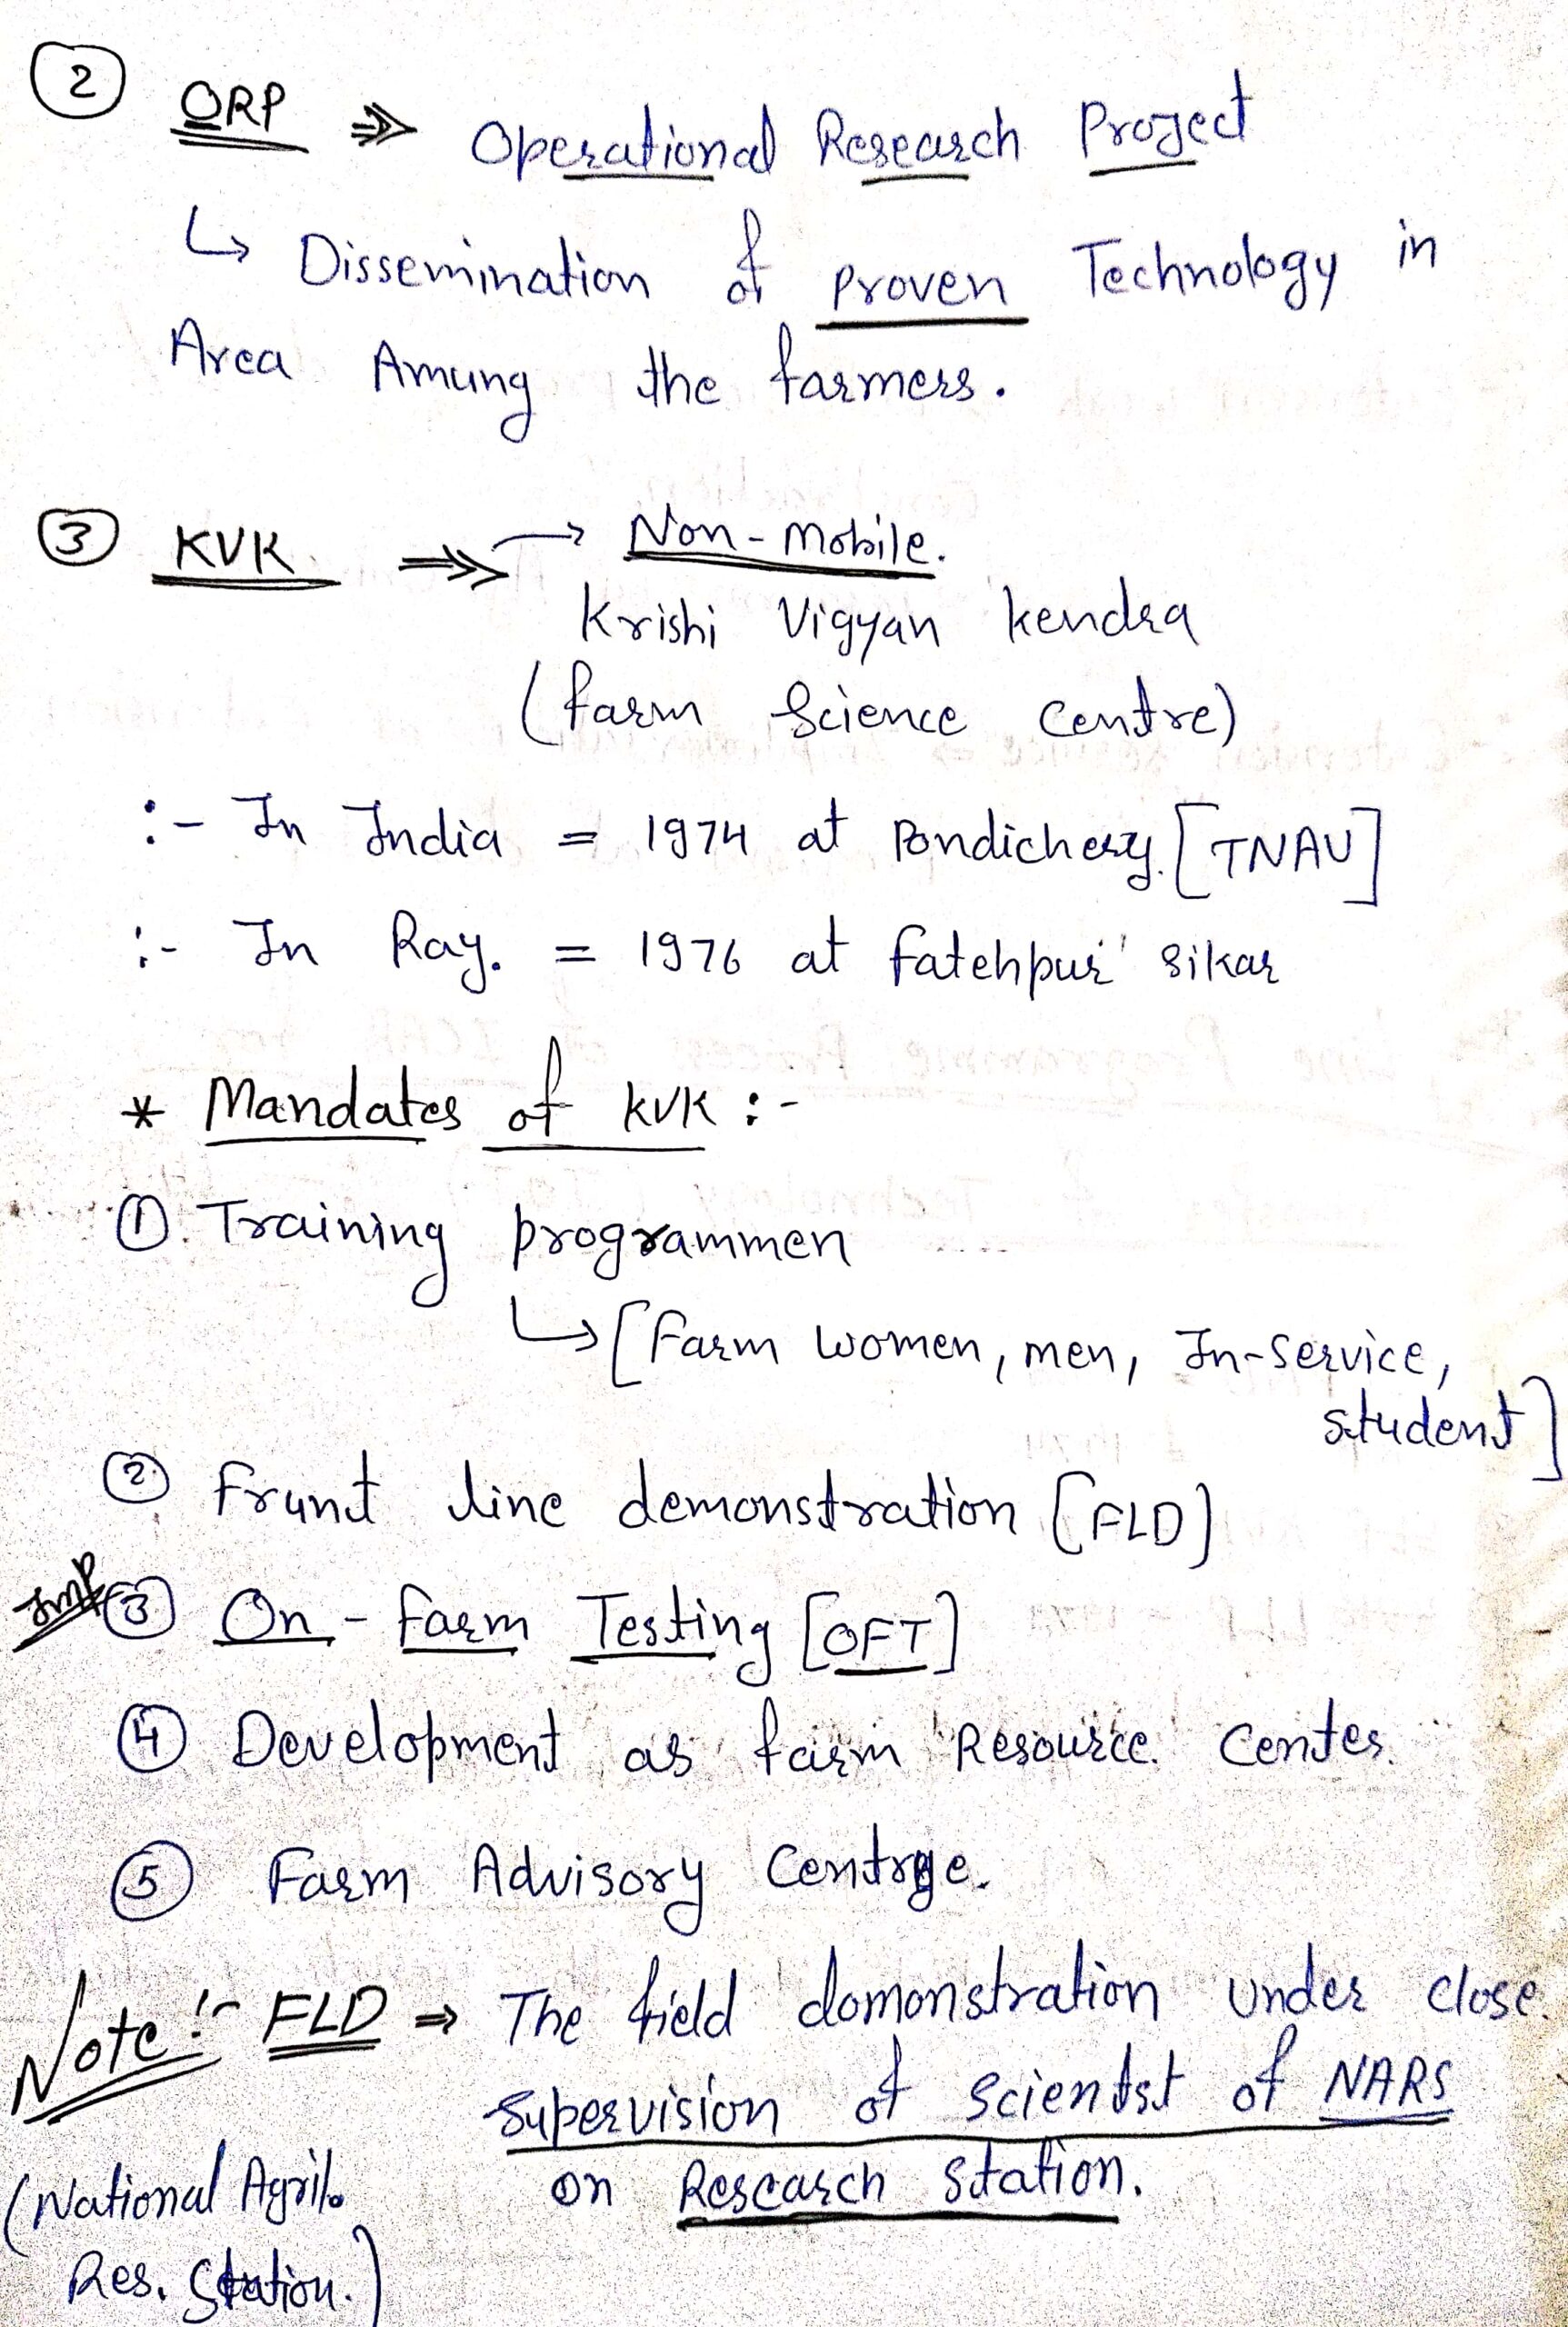 ② ORP ⇒ Operational Research Project
↳ Dissemination of Proven Technology in
Area Amung the farmers.
③ KVK ⇒ → Non-Mobile.
Krishi Vigyan Kendra
(farm Science Centre)
:- In India = 1974 at Pondichery. [TNAU]
:- In Raj. = 1976 at fatehpur sikar
* Mandates of KVK :-
① Training programmen
↳ [Farm women, men, In-Service,
student]
② frunt line demonstration [FLD]
Imp ③ On-farm Testing [OFT]
④ Development as farm Resource Center.
⑤ Farm Advisory Centre.
Note :- FLD ⇒ The field domonstration under close
supervision of scientst of NARS
on Research Station.
(National Agril.
Res. Station.)